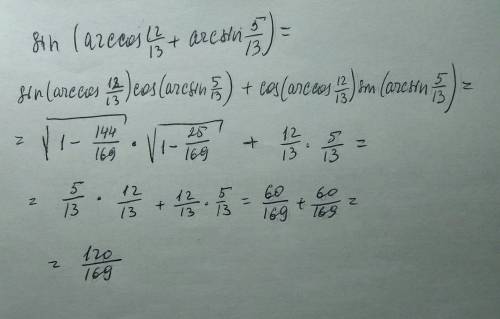 sin (arccos 12/13 + arcsin 5/13) =
sin(arccos 12/13)cos(arcsin 5/13) + cos(arccos 12/13)sin(arcsin 5/13) =
= √(1 - 144/169) · √(1 - 25/169) + 12/13 · 5/13 =
= 5/13 · 12/13 + 12/13 · 5/13 = 60/169 + 60/169 =
= 120/169